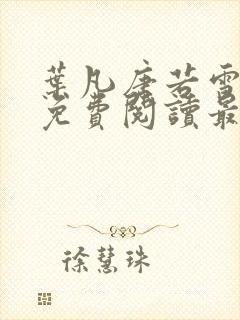 葉凡唐若雪
免費閱讀最
徐慧珠